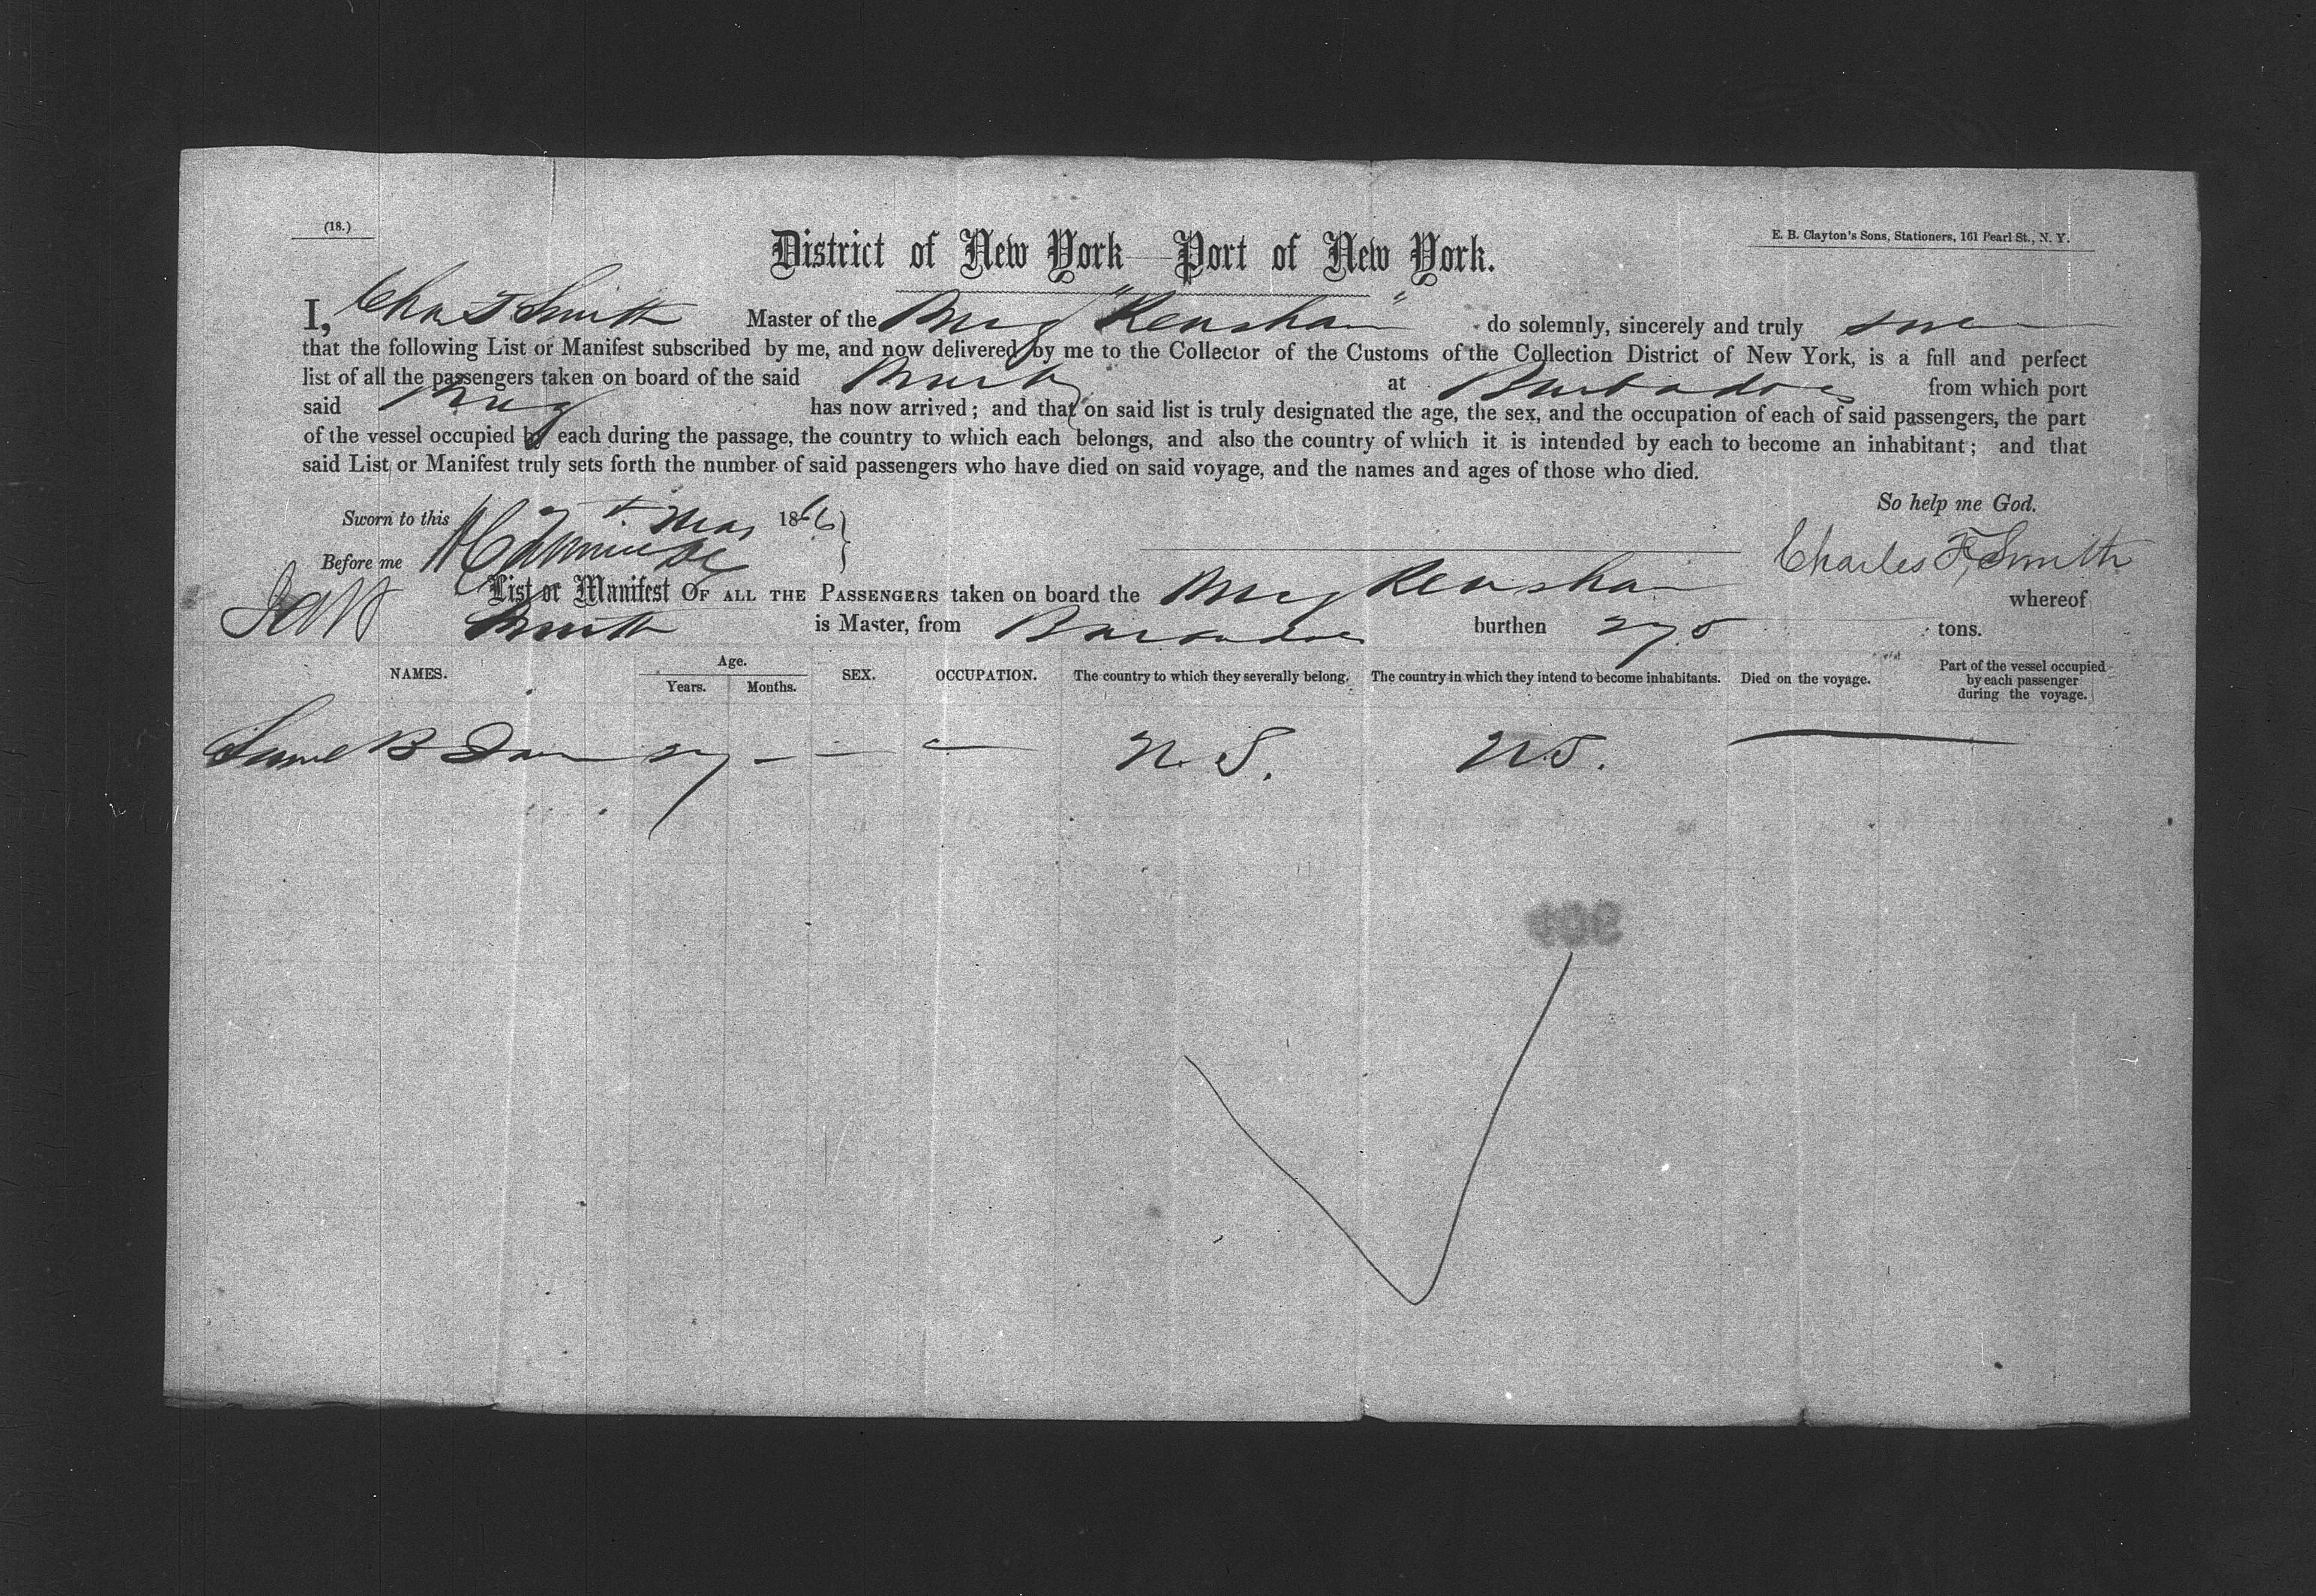 (18.)
E. B. Clayton's Sons, Stationers, 161 Pearl St., N. Y.
District of New York—Port of New York.
I, Chas F Smith Master of the Brig "Renshaw" do solemnly, sincerely and truly swear
that the following List or Manifest subscribed by me, and now delivered by me to the Collector of the Customs of the Collection District of New York, is a full and perfect
list of all the passengers taken on board of the said Brig at Barbadoes from which port
said Brig has now arrived; and that on said list is truly designated the age, the sex, and the occupation of each of said passengers, the part
of the vessel occupied by each during the passage, the country to which each belongs, and also the country of which it is intended by each to become an inhabitant; and that
said List or Manifest truly sets forth the number of said passengers who have died on said voyage, and the names and ages of those who died.
So help me God.
Sworn to this May 1866
Charles F. Smith
Before me
List or Manifest OF ALL THE PASSENGERS taken on board the Brig Renshaw whereof
Smith is Master, from Barbadoes burthen 275 tons.
NAMES. Age. Years. Months. SEX. OCCUPATION. The country to which they severally belong. The country in which they intend to become inhabitants. Died on the voyage. Part of the vessel occupied by each passenger during the voyage.
B 27 — — — U. S. U.S.